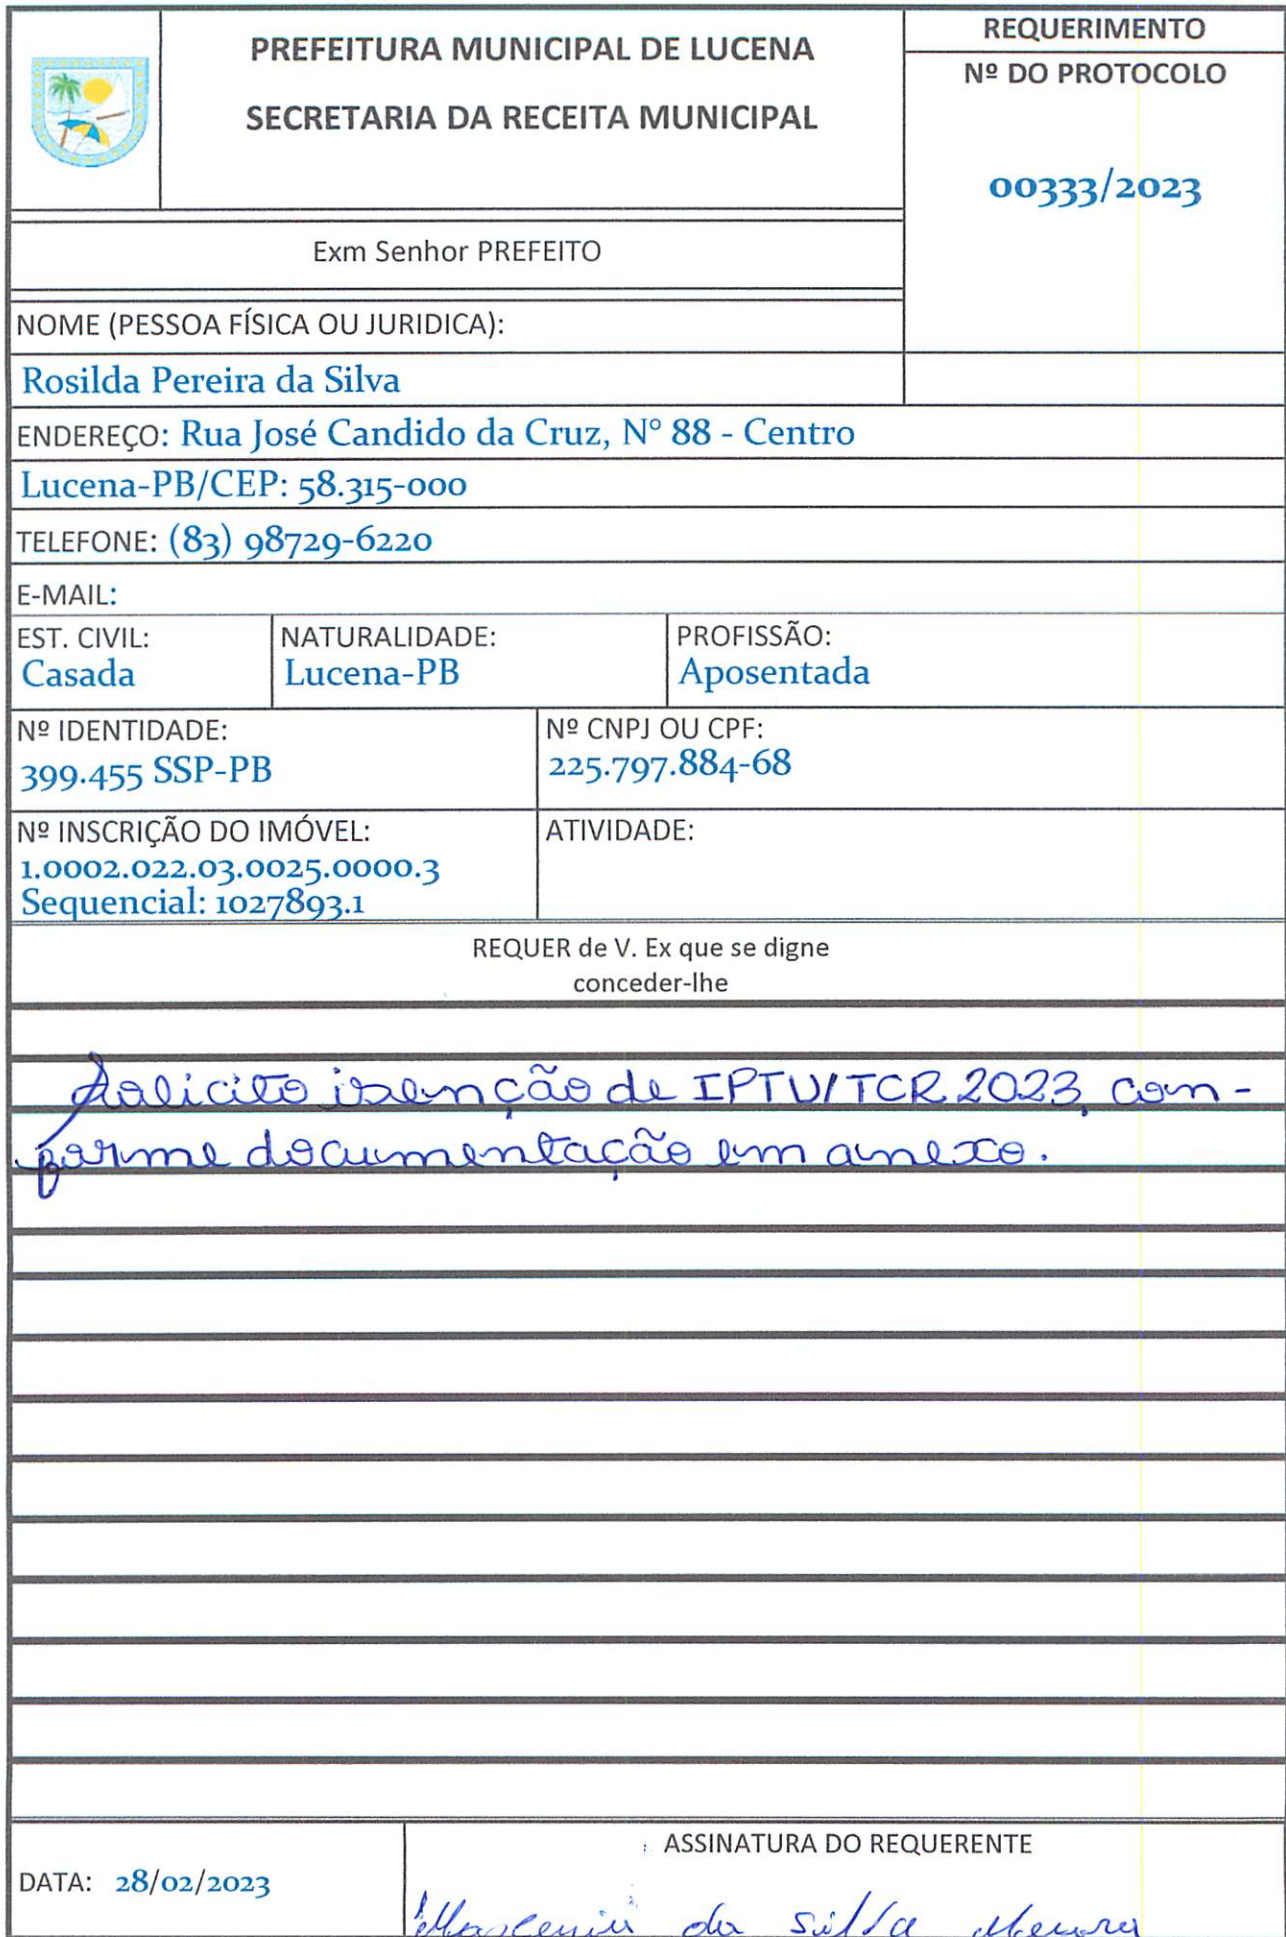 PREFEITURA MUNICIPAL DE LUCENA
SECRETARIA DA RECEITA MUNICIPAL
REQUERIMENTO
Nº DO PROTOCOLO
00333/2023
Exm Senhor PREFEITO
NOME (PESSOA FÍSICA OU JURIDICA):
Rosilda Pereira da Silva
ENDEREÇO: Rua José Candido da Cruz, N° 88 - Centro
Lucena-PB/CEP: 58.315-000
TELEFONE: (83) 98729-6220
E-MAIL:
EST. CIVIL:
Casada
NATURALIDADE:
Lucena-PB
PROFISSÃO:
Aposentada
Nº IDENTIDADE:
399.455 SSP-PB
Nº CNPJ OU CPF:
225.797.884-68
Nº INSCRIÇÃO DO IMÓVEL:
1.0002.022.03.0025.0000.3
Sequencial: 1027893.1
ATIVIDADE:
REQUER de V. Ex que se digne
conceder-lhe
Solicito isenção de IPTU/TCR 2023, con-
forme documentação em anexo.
DATA: 28/02/2023
ASSINATURA DO REQUERENTE
da Silva